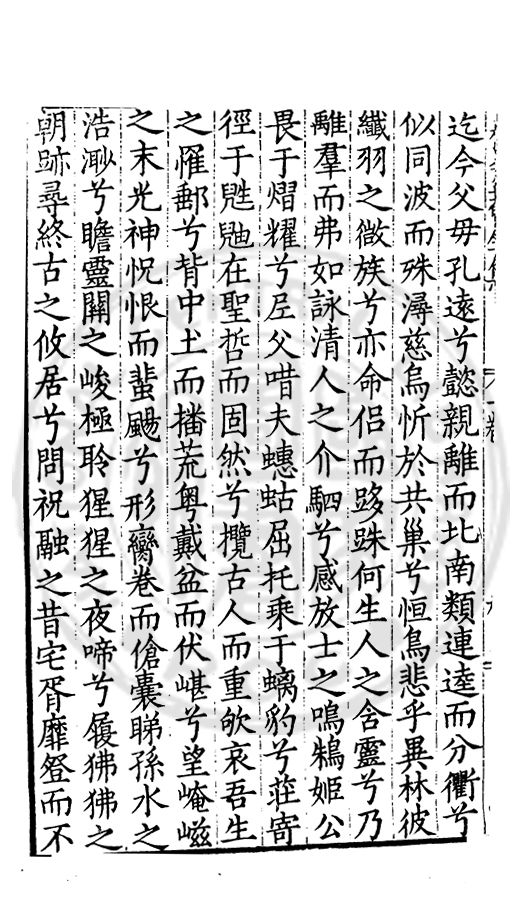 迄今父毋孔遠兮懿親離而北南類連逵而分衢兮
似同波而殊潯慈烏忻於共巢兮恒鳥悲乎異林彼
纎羽之微族兮亦命侶而跢跦何生人之含靈兮乃
離羣而弗如詠清人之介駟兮感放士之鳴鵂姬公
畏于熠耀兮尼父唶夫蟪蛄屈托乘于螭豹兮莊寄
徑于鼪鼬在聖哲而固然兮攬古人而重欷哀吾生
之罹郵兮背中土而播荒粤戴盆而伏嵁兮望崦嵫
之末光神怳恨而蜚颺兮形臠卷而傖囊睇孫水之
浩渺兮瞻靈關之峻極聆猩猩之夜啼兮履狒狒之
朝跡尋終古之攸居兮問祝融之昔宅胥靡登而不